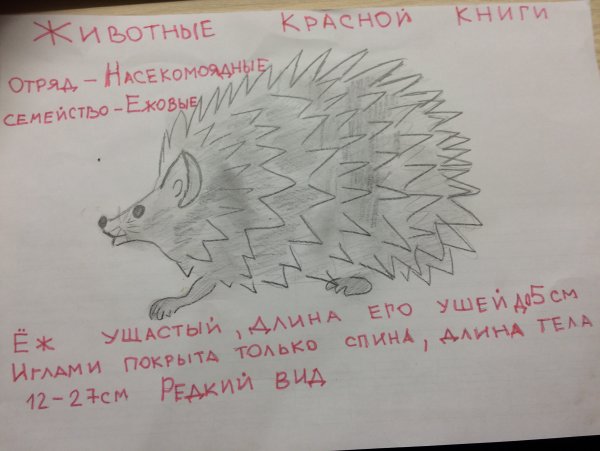 Животные Красной книги
Отряд - Насекомоядные
Семейство - Ежовые
Ёж ушастый, длина его ушей до 5 см
Иглами покрыта только спина, длина тела
12-27см Редкий вид